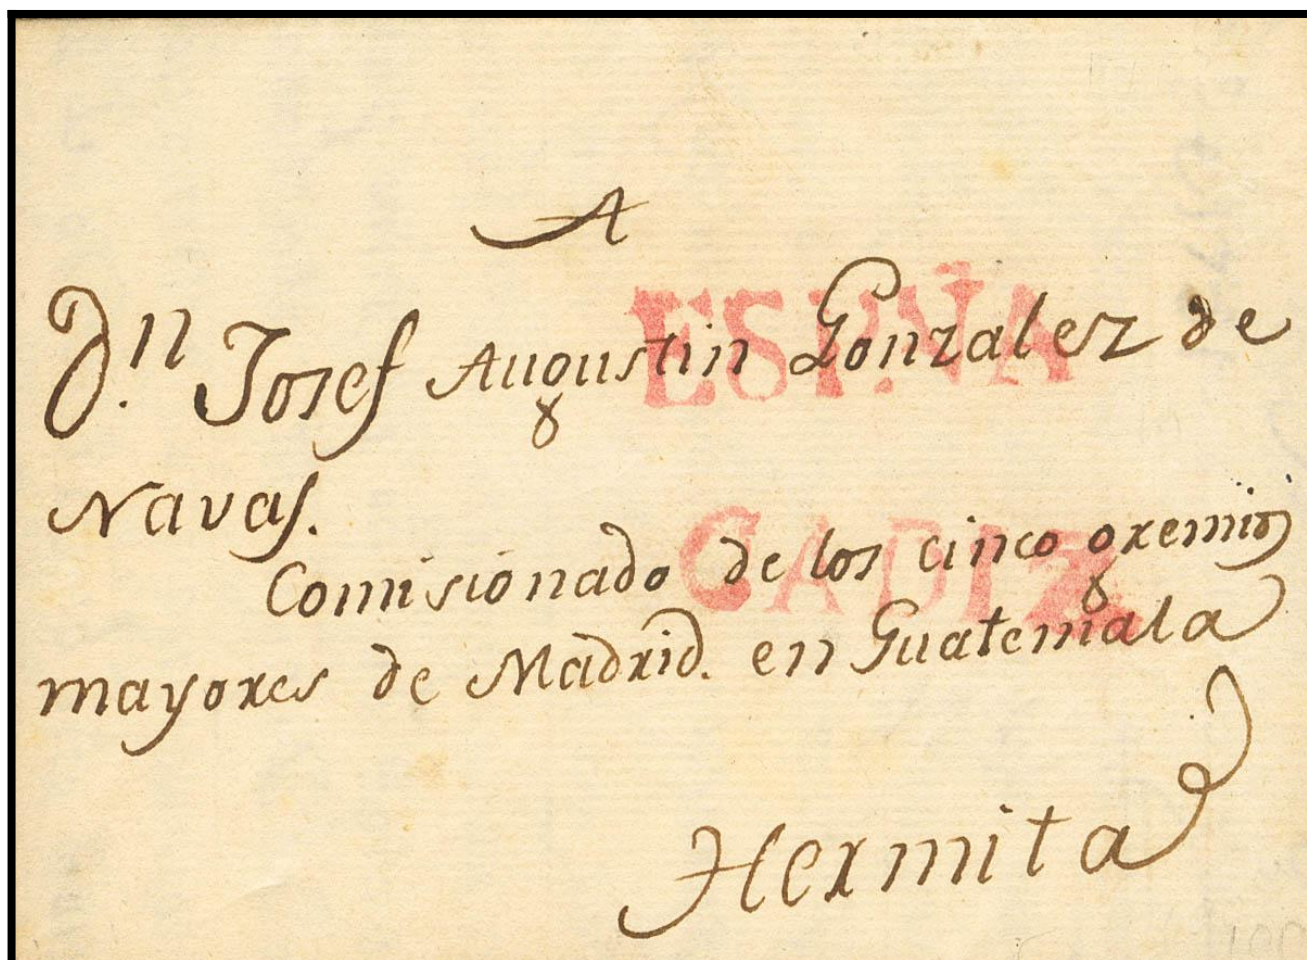 A
ESPNA
Dn. Josef Augustin Gonzalez de
Navas.
CADIZ
Comisionado de los cinco gremios
mayores de Madrid. en Guatemala
Hermita
100